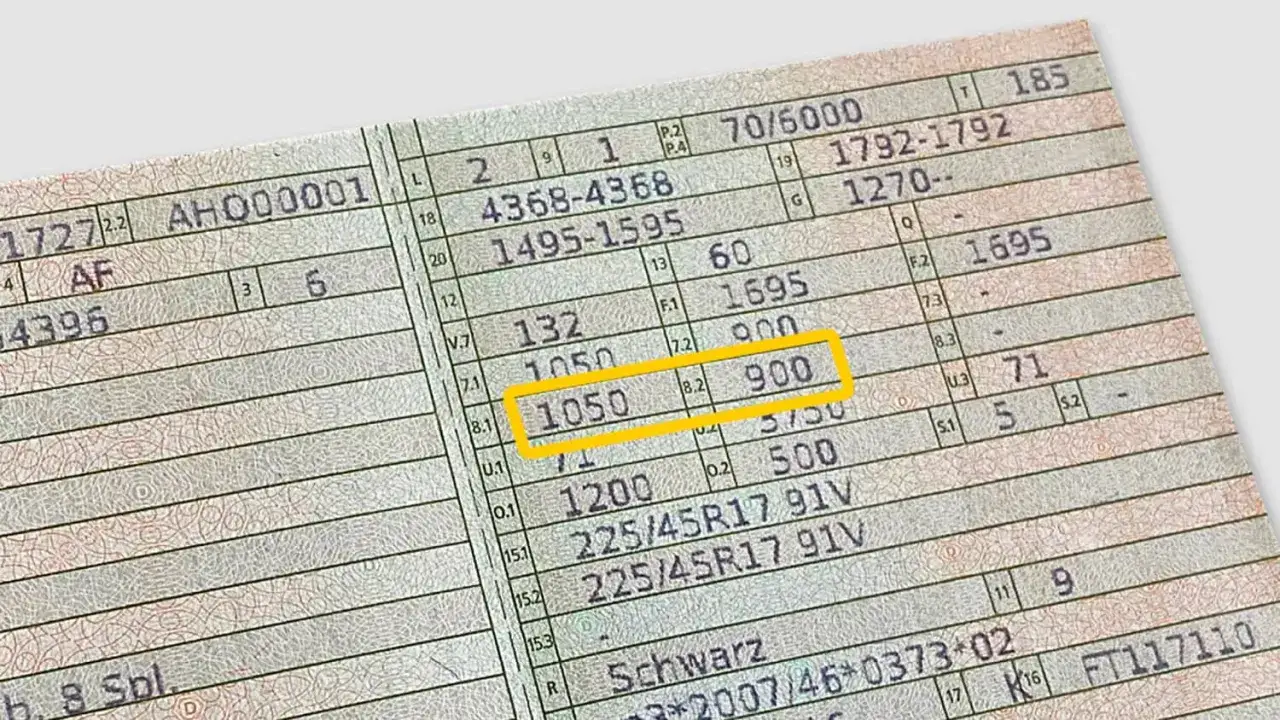 1727 2.2 AHO00001
4 AF 3 6
4396
b. 8 Spl.
L 2 9 1 P.2 P.4 70/6000 T 185
18 4368-4368 19 1792-1792
20 1495-1595 G 1270--
12 13 60 Q -
V.7 132 F.1 1695 F.2 1695
7.1 1050 7.2 900 7.3 -
8.1 1050 8.2 900 8.3 -
U.1 71 U.2 3750 U.3 71
O.1 1200 O.2 500 S.1 5 S.2 -
15.1 225/45R17 91V
15.2 225/45R17 91V
15.3 -
R Schwarz 11 9
*2007/46*0373*02
17 K 16 FT117110